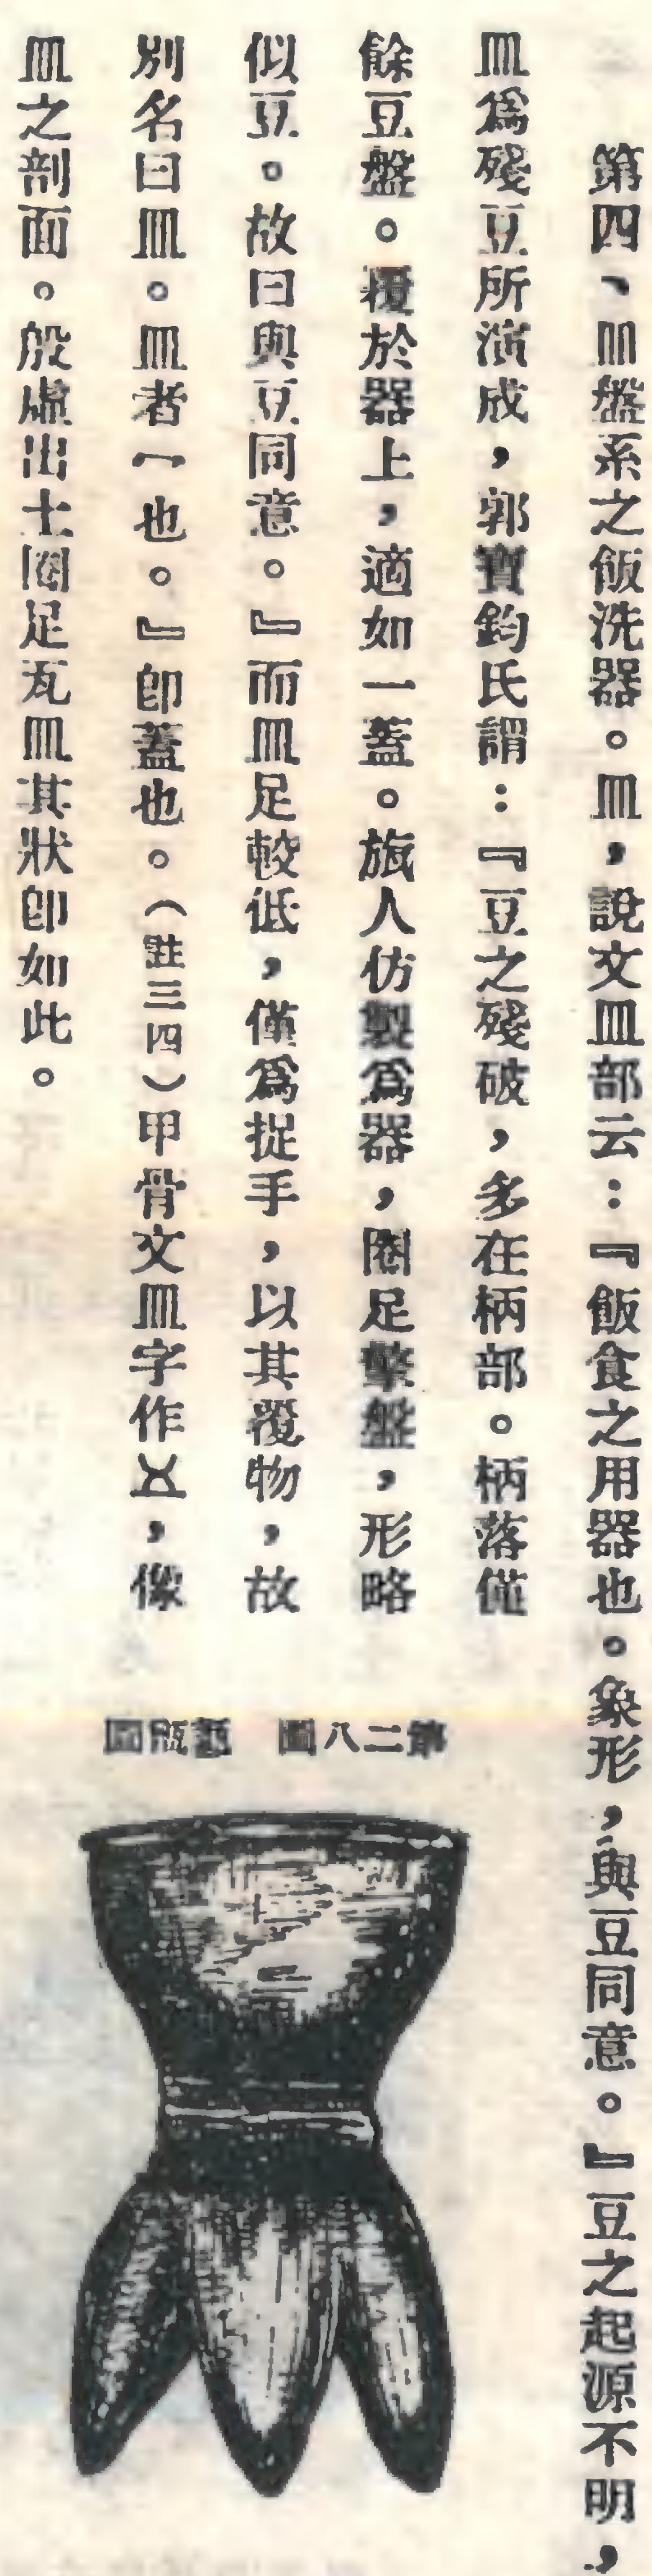 第四、皿盤系之飯洗器。皿，說文皿部云：『飯食之用器也。象形，與豆同意。』豆之起源不明，
皿爲殘豆所演成，郭寶鈞氏謂：『豆之殘破，多在柄部。柄落僅
餘豆盤。覆於器上，適如一蓋。旅人仿製爲器，圈足擎盤，形略
似豆。故曰與豆同意。』而皿足較低，僅爲捉手，以其覆物，故
別名曰皿。皿者冖也。』卽蓋也。（註三四）甲骨文皿字作，像
皿之剖面。殷虛出土圈足瓦皿其狀卽如此。
第二八圖　甗瓶圖